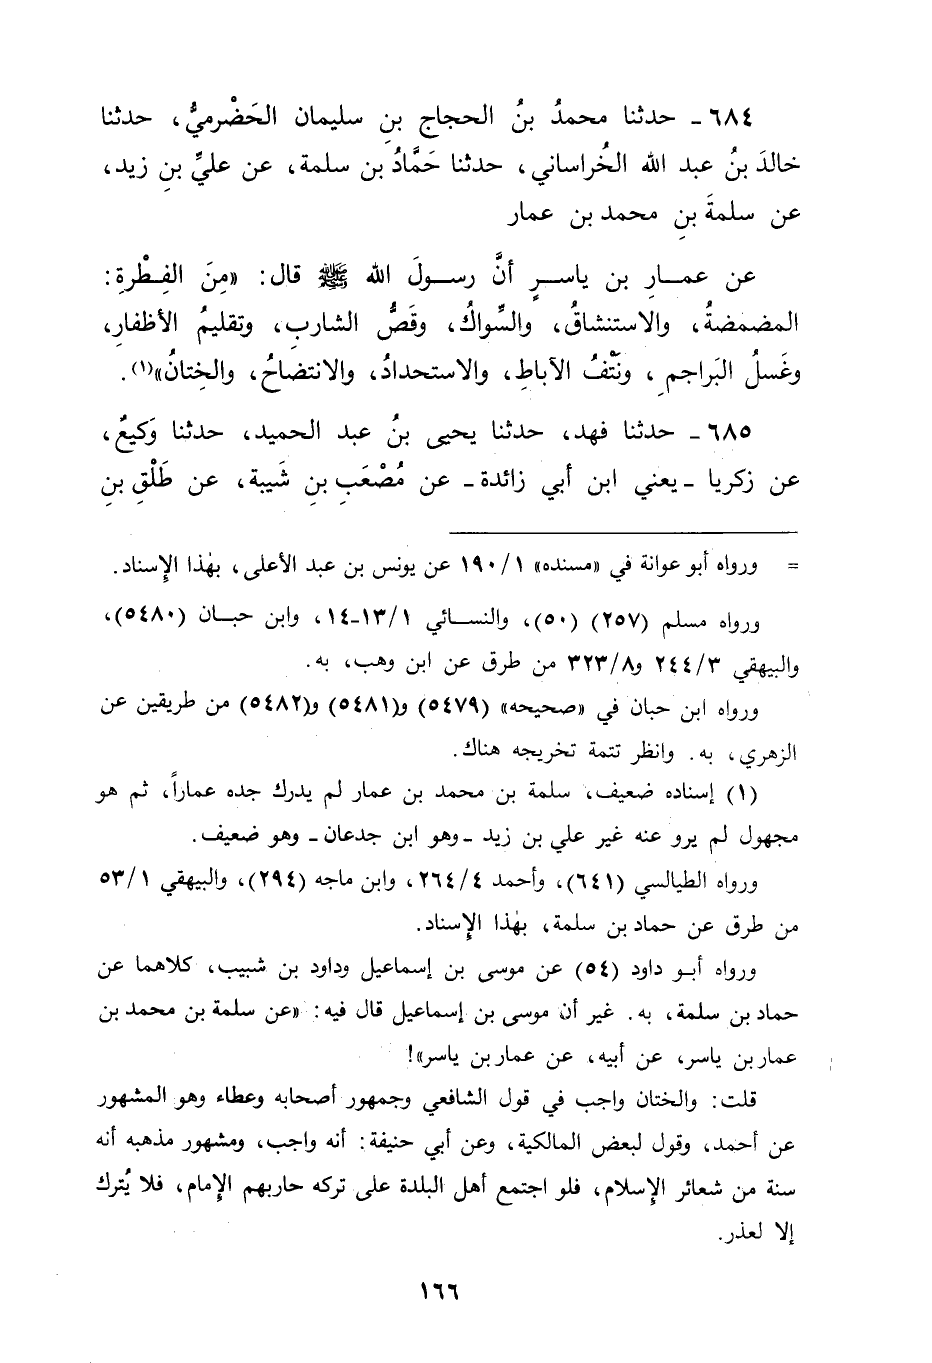 ٦٨٤ ـ حدثنا محمدُ بنُ الحجاجِ بنِ سليمان الحَضْرميُّ، حدثنا
خالدَ بنُ عبد الله الخُراساني، حدثنا حَمَّادُ بن سلمة، عن عليِّ بنِ زيد،
عن سلمةَ بنِ محمد بن عمار
عن عمـارِ بن ياسـرٍ أنَّ رسـولَ الله ﷺ قال: «مِنَ الفِطْرةِ:
المضمضةُ، والاستنشاقُ، والسِّواكُ، وقَصُّ الشاربِ، وتقليمُ الأظفارِ،
وغَسلُ البَراجمِ، ونَتْفُ الآباطِ، والاستحدادُ، والانتضاحُ، والخِتانُ»(١).
٦٨٥ ـ حدثنا فهد، حدثنا يحيى بنُ عبد الحميد، حدثنا وَكيعٌ،
عن زكريا ـ يعني ابن أبي زائدة ـ عن مُصْعَبِ بنِ شَيبة، عن طَلْقِ بنِ
= ورواه أبو عوانة في «مسنده» ١/ ١٩٠ عن يونس بن عبد الأعلى، بهٰذا الإسناد.
ورواه مسلم (٢٥٧) (٥٠)، والنسـائي ١/ ١٣ـ١٤، وابن حبـان (٥٤٨٠)،
والبيهقي ٣/ ٢٤٤ و٨/ ٣٢٣ من طرق عن ابن وهب، به.
ورواه ابن حبان في «صحيحه» (٥٤٧٩) و(٥٤٨١) و(٥٤٨٢) من طريقين عن
الزهري، به. وانظر تتمة تخريجه هناك.
(١) إسناده ضعيف، سلمة بن محمد بن عمار لم يدرك جده عماراً، ثم هو
مجهول لم يرو عنه غير علي بن زيد ـ وهو ابن جدعان ـ وهو ضعيف.
ورواه الطيالسي (٦٤١)، وأحمد ٤/ ٢٦٤، وابن ماجه (٢٩٤)، والبيهقي ١/ ٥٣
من طرق عن حماد بن سلمة، بهٰذا الإسناد.
ورواه أبـو داود (٥٤) عن موسى بن إسماعيل وداود بن شبيب، كلاهما عن
حماد بن سلمة، به. غير أن موسى بن إسماعيل قال فيه: «عن سلمة بن محمد بن
عمار بن ياسر، عن أبيه، عن عمار بن ياسر»!
قلت: والختان واجب في قول الشافعي وجمهور أصحابه وعطاء وهو المشهور
عن أحمد، وقول لبعض المالكية، وعن أبي حنيفة: أنه واجب، ومشهور مذهبه أنه
سنة من شعائر الإسلام، فلو اجتمع أهل البلدة على تركه حاربهم الإمام، فلا يُترك
إلا لعذر.
١٦٦